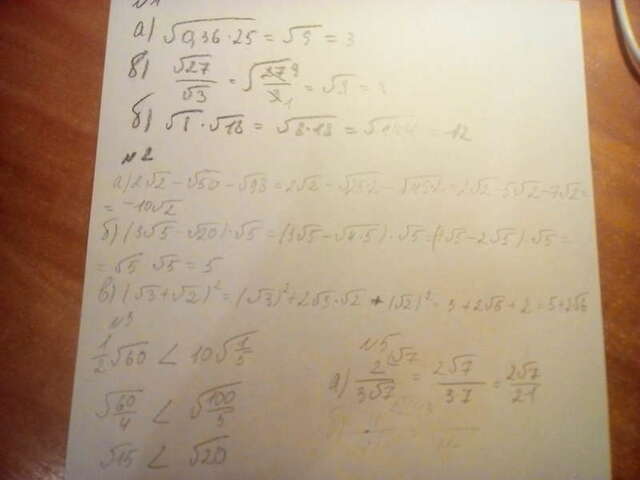 №1
а) √0,36·25 = √9 = 3
в) √27/√3 = √27 9/3 1 = √9 = 3
б) √8 · √18 = √8·18 = √144 = 12
№2
а) 2√2 - √50 - √98 = 2√2 - √25·2 - √49·2 = 2√2 - 5√2 - 7√2 =
= -10√2
б) (3√5 - √20)·√5 = (3√5 - √4·5)·√5 = (3√5 - 2√5)·√5 =
= √5 · √5 = 5
в) (√3 + √2)² = (√3)² + 2√3·√2 + (√2)² = 3 + 2√6 + 2 = 5 + 2√6
№3
1/2 √60 < 10√1/5
√60/4 < √100/5
√15 < √20
№5
а) 2/3√7 = 2√7/3·7 = 2√7/21